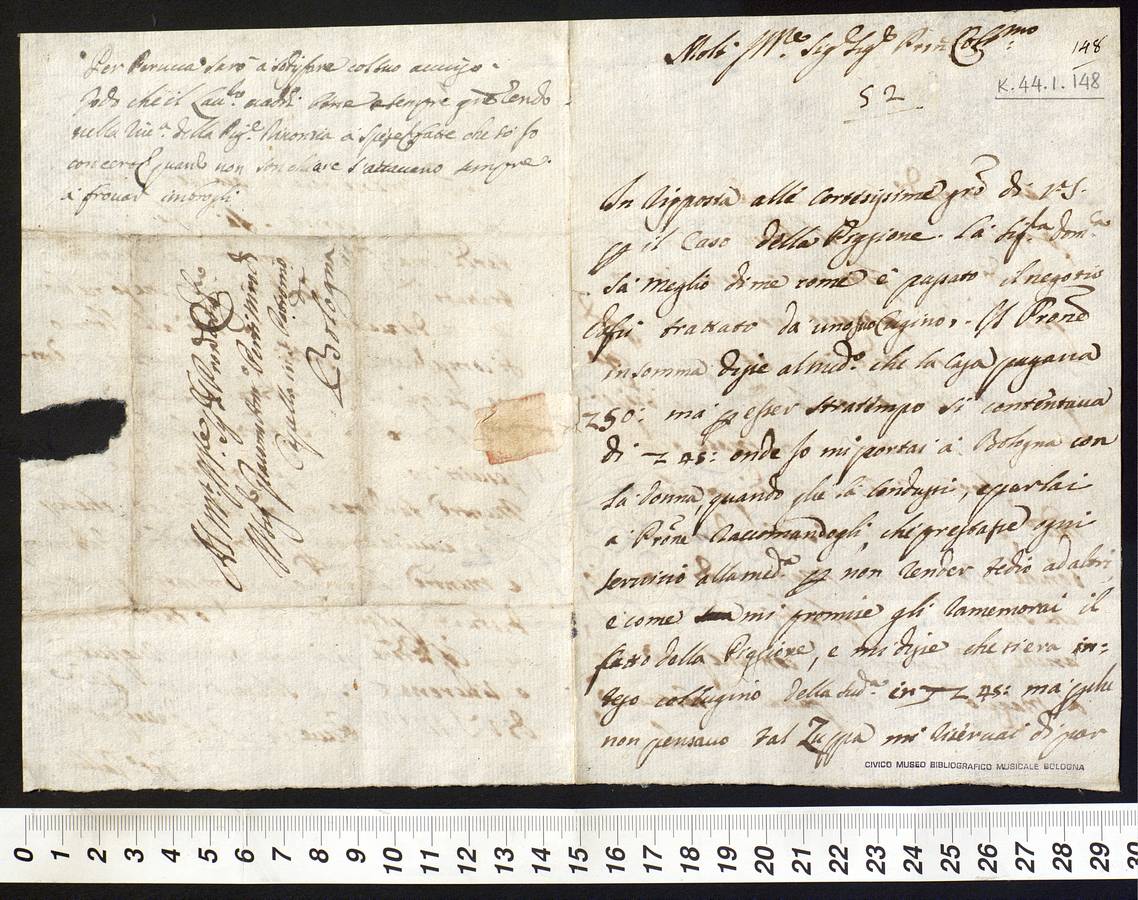 Per Perucca sarò à sodisfare col suo auuiso.
Godo che il
nella della Sig.ª Veronica à che Io so
quando non son chiare s'attaccano sempre
à trouar imbrogli
Al Sig.r Sig.r
Giacom'Ant.o Perti
di S. Petronio
di
Bologna
Molt' Ill.re Sig.r Sig.r Pron Col.mo
148
K.44.1.148
52
In risposta alle cortesissime di V.S.
p il caso della Piggione. La Sig.ra Dom.ca
sà meglio di me come è passato il negotio
e fù trattato da uno suo Cugino. Il Prone
insomma disse al med.o che la casa pagaua
250: ma p esser stratempo si contentaua
di 45: onde Io mi portai à Bologna con
la donna, quando glie la condussi, e parlai
à Prone racomandegli, che prestasse ogni
seruitio alla med.a p non render tedio ad altri,
e come mi promise gli ramemorai il
fatto della Piggione, e mi disse che si era in=
teso col Cugino della sud.a in 45: ma p che
non pensauo tal Zuppa mi riseruai di par
CIVICO MUSEO BIBLIOGRAFICO MUSICALE BOLOGNA
0 1 2 3 4 5 6 7 8 9 10 11 12 13 14 15 16 17 18 19 20 21 22 23 24 25 26 27 28 29 30